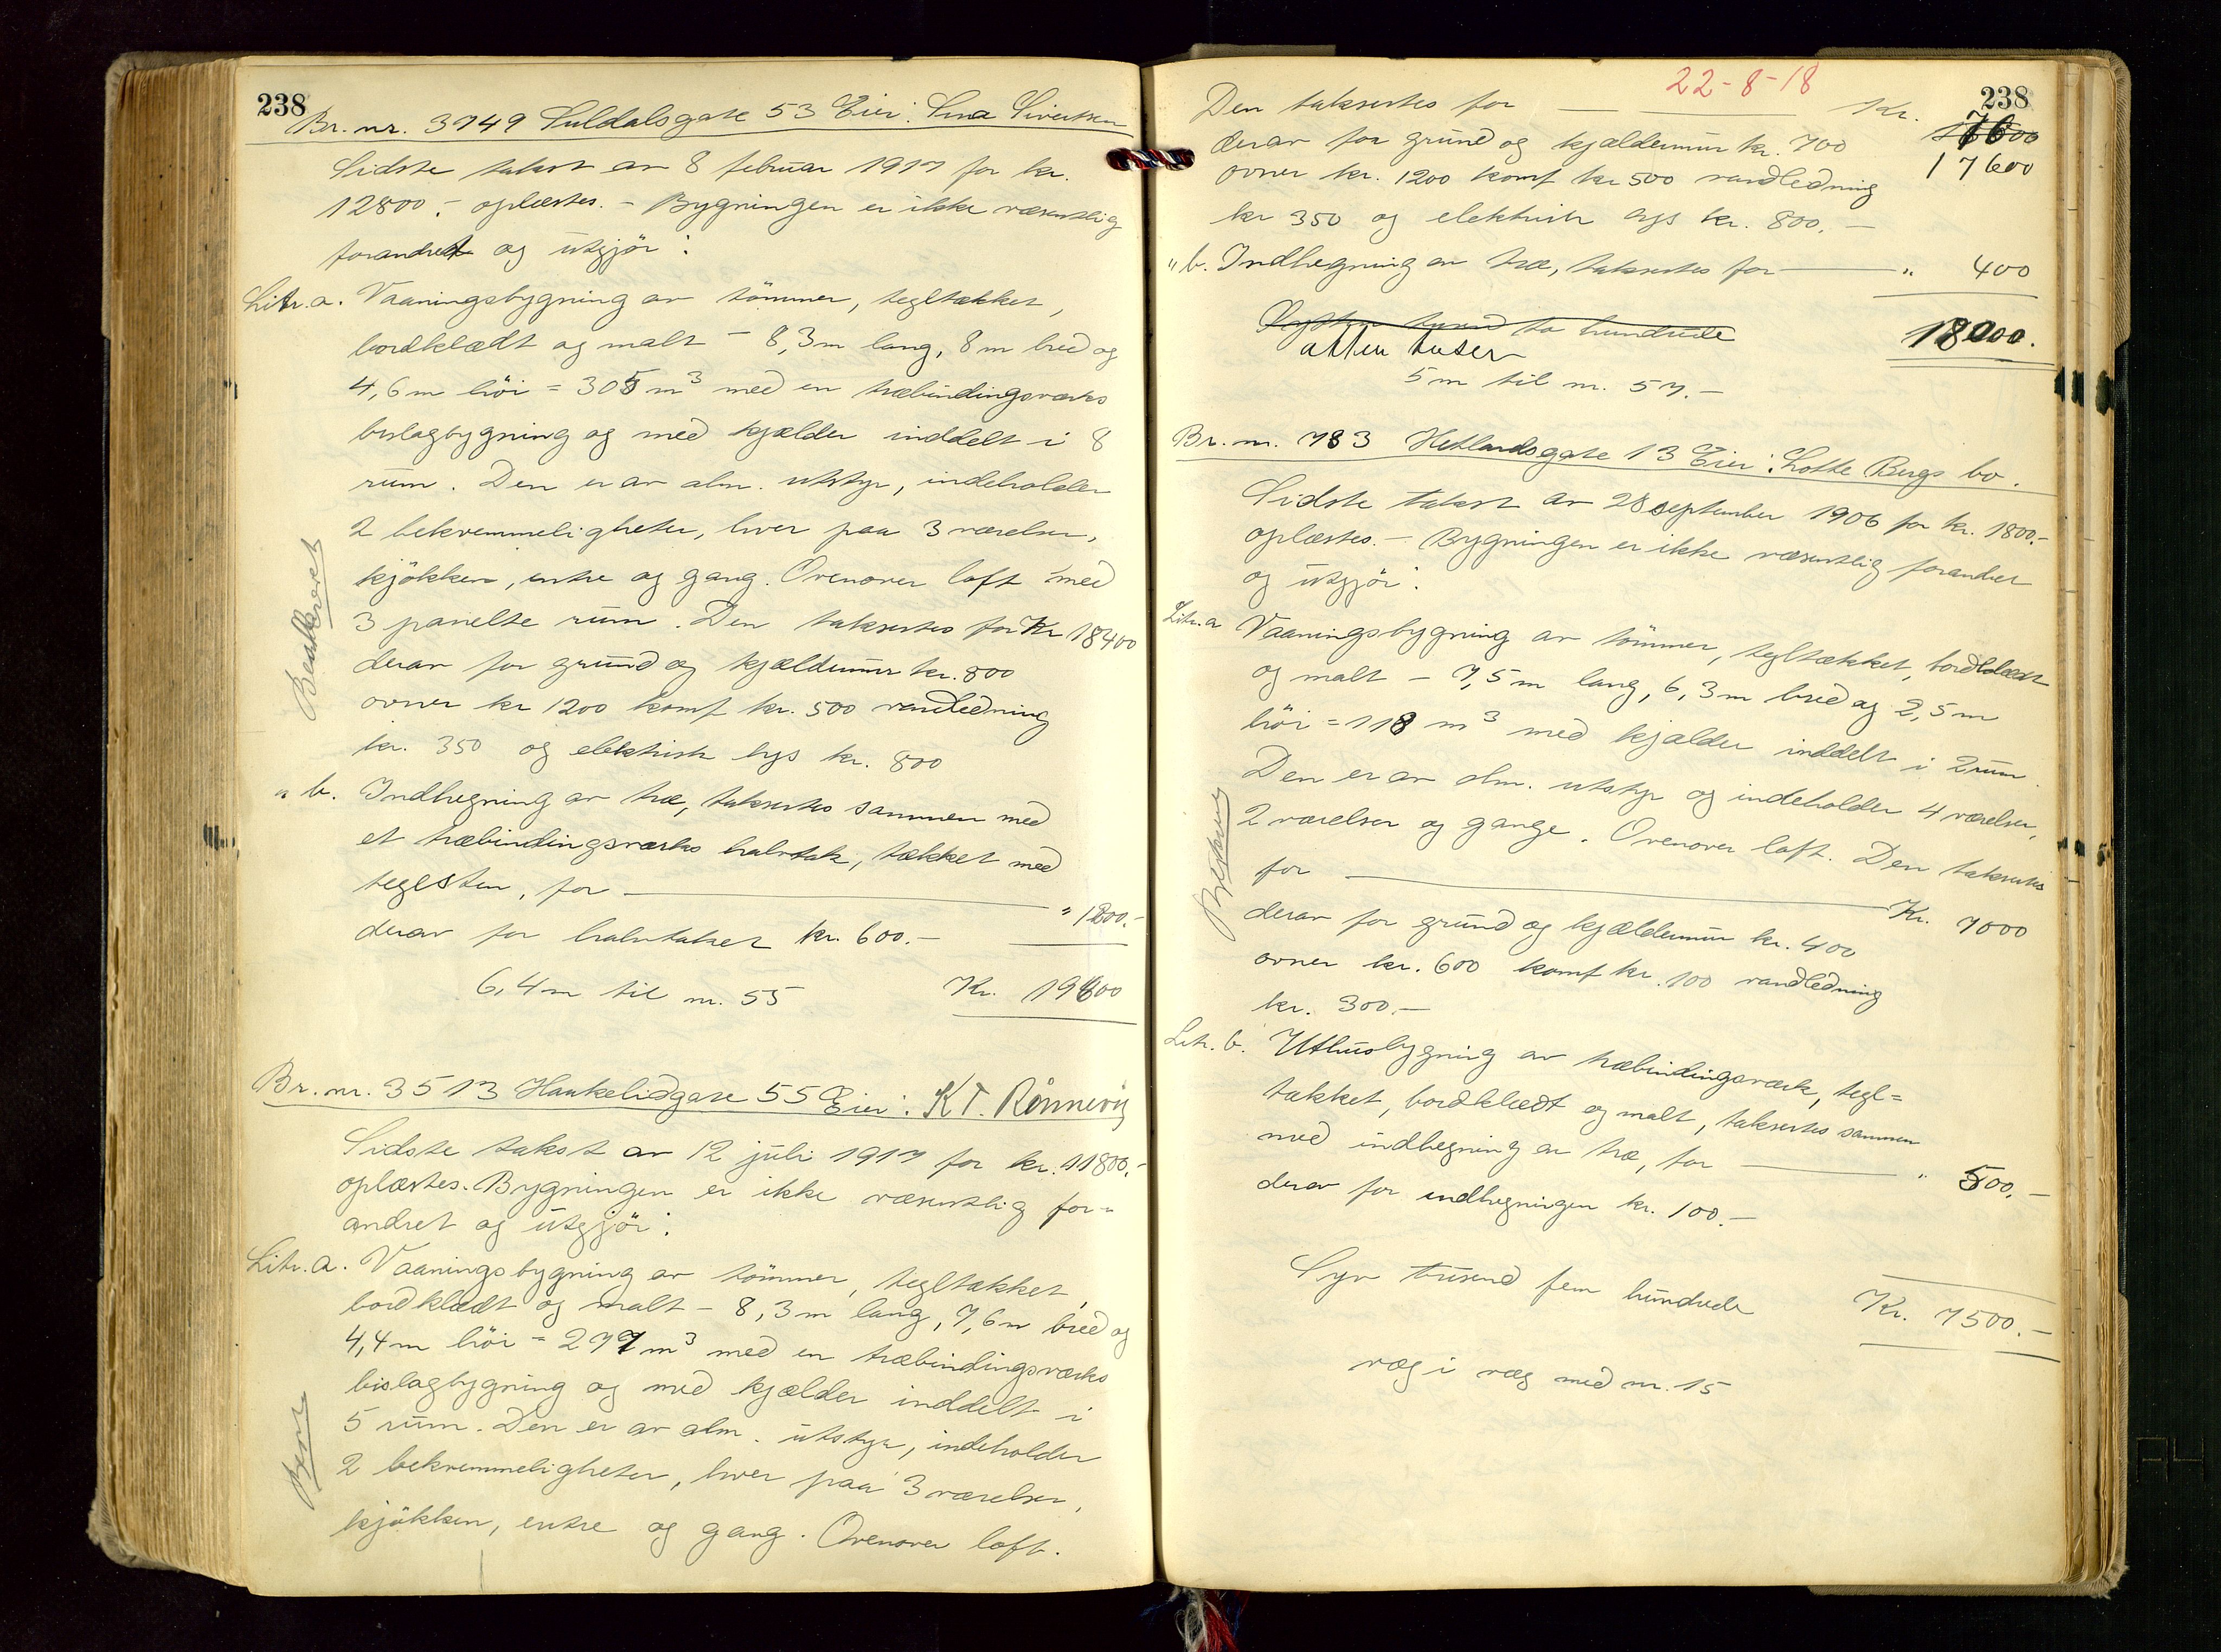 238
Br. nr. 3749 Suldalsgate 53 Eier: Sina Sivertsen
Sidste takst av 8 februar 1917 for kr.
12800.- oplæstes. - Bygningen er ikke væsentlig
forandret og utgjör:
Litr. a. Vaaningsbygning av tömmer, tegltækket,
bordklædt og malt - 8,3 m lang, 8 m bred og
4,6 m höi = 305 m³ med en træbindingsverks
bislagbygning og med kjælder inddelt i 8
rum. Den er av alm. utstyr, indeholder
2 bekvemmeligheter, hver paa 3 værelser,
kjökken, entre og gang. Ovenover loft med
3 panelte rum. Den taksertes for Kr 18400
derav for grund og kjældermur kr. 800
ovner kr 1200 komf kr. 500 vandledning
kr. 350 og elektrisk lys kr. 800
" b. Indhegning av træ, taksertes sammen med
et træbindingsværks halvtak, tækket med
teglsten, for " 1200.-
derav for halvtaket kr. 600.-
6,4 m til nr. 55 Kr. 19600
Br. nr. 3513 Haukelidgate 55 Eier: K T. Rönnevig
Sidste takst av 12 juli 1917 for kr. 11800.-
oplæstes. Bygningen er ikke væsentlig for-
andret og utgjör:
Litr. a. Vaaningsbygning av tömmer, tegltækket,
bordklædt og malt - 8,3 m lang, 7,6 m bred og
4,4 m höi = 277 m³ med en træbindingsværks
bislagbygning og med kjælder inddelt i
5 rum. Den er av alm. utstyr, indeholder
2 bekvemmeligheter, hver paa 3 værelser,
kjökken, entre og gang. Ovenover loft.
22-8-18
238
Den taksertes for Kr.
17600
derav for grund og kjældermur kr. 700
ovner kr. 1200 komf kr 500 vandledning
kr 350 og elektrisk lys kr. 800.-
" b. Indhegning av træ, taksertes for " 400
atten tusen 18000.
5 m til nr. 57.-
Br. nr. 783 Hetlandsgate 13 Eier: Lotte Bergs bo.
Sidste takst av 28 september 1906 for kr. 1800.-
oplæstes. - Bygningen er ikke væsentlig forandret
og utgjör:
Litr. a Vaaningsbygning av tömmer, tegltækket, bordklædt
og malt - 7,5 m lang, 6,3 m bred og 2,5 m
höi = 118 m³ med kjælder inddelt i 2 rum
Den er av alm. utstyr og indeholder 4 værelser,
2 værelser og gange. Ovenover loft. Den taksertes
for Kr. 7000
derav for grund og kjældermur kr. 400
ovner kr. 600 komf kr. 100 vandledning
kr. 300.-
Litr. b. Uthusbygning av træbindingsværk, tegl=
tækket, bordklædt og malt, taksertes sammen
med indhegning av træ, for " 500.-
derav for indhegningen kr. 100.-
Syv tusend fem hundrede Kr. 7500.-
væg i væg med nr. 15